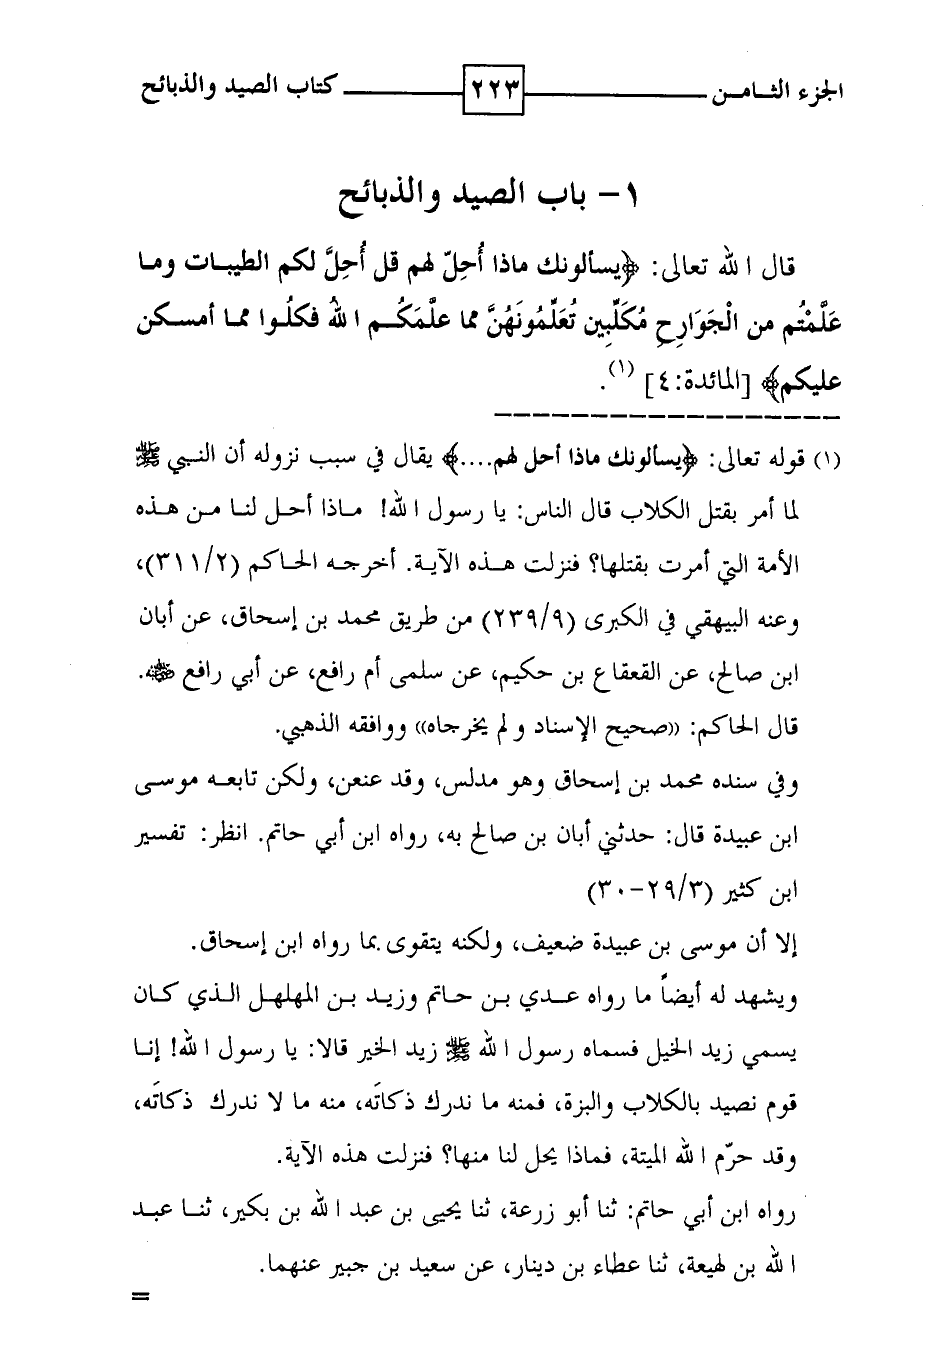 الجزء الثامن ٢٢٣ كتاب الصيد والذبائح
١- باب الصيد والذبائح
قال الله تعالى: ﴿يسألونك ماذا أُحِلّ لهم قل أُحِلَّ لكم الطيبات وما
عَلَّمْتُم من الْجَوَارِحِ مُكَلِّبِين تُعَلِّمُونَهُنَّ مما علمَكُم اللهُ فكلُوا مما أمسكن
عليكم﴾ [المائدة:٤] (١).
(١) قوله تعالى: ﴿يسألونك ماذا أحل لهم....﴾ يقال في سبب نزوله أن النبي ﷺ
لما أمر بقتل الكلاب قال الناس: يا رسول الله! ماذا أحل لنا من هذه
الأمة التي أمرت بقتلها؟ فنزلت هذه الآية. أخرجه الحاكم (٣١١/٢)،
وعنه البيهقي في الكبرى (٢٣٩/٩) من طريق محمد بن إسحاق، عن أبان
ابن صالح، عن القعقاع بن حكيم، عن سلمى أم رافع، عن أبي رافع ﵁.
قال الحاكم: ((صحيح الإسناد و لم يخرجاه)) ووافقه الذهبي.
وفي سنده محمد بن إسحاق وهو مدلس، وقد عنعن، ولكن تابعه موسى
ابن عبيدة قال: حدثني أبان بن صالح به، رواه ابن أبي حاتم. انظر: تفسير
ابن كثير (٢٩/٣-٣٠)
إلا أن موسى بن عبيدة ضعيف، ولكنه يتقوى بما رواه ابن إسحاق.
ويشهد له أيضاً ما رواه عدي بن حاتم وزيد بن المهلهل الذي كان
يسمي زيد الخيل فسماه رسول الله ﷺ زيد الخير قالا: يا رسول الله! إنا
قوم نصيد بالكلاب والبزة، فمنه ما ندرك ذكاتَه، منه ما لا ندرك ذكاتَه،
وقد حرّم الله الميتة، فماذا يحل لنا منها؟ فنزلت هذه الآية.
رواه ابن أبي حاتم: ثنا أبو زرعة، ثنا يحيى بن عبد الله بن بكير، ثنا عبد
الله بن لهيعة، ثنا عطاء بن دينار، عن سعيد بن جبير عنهما.
=